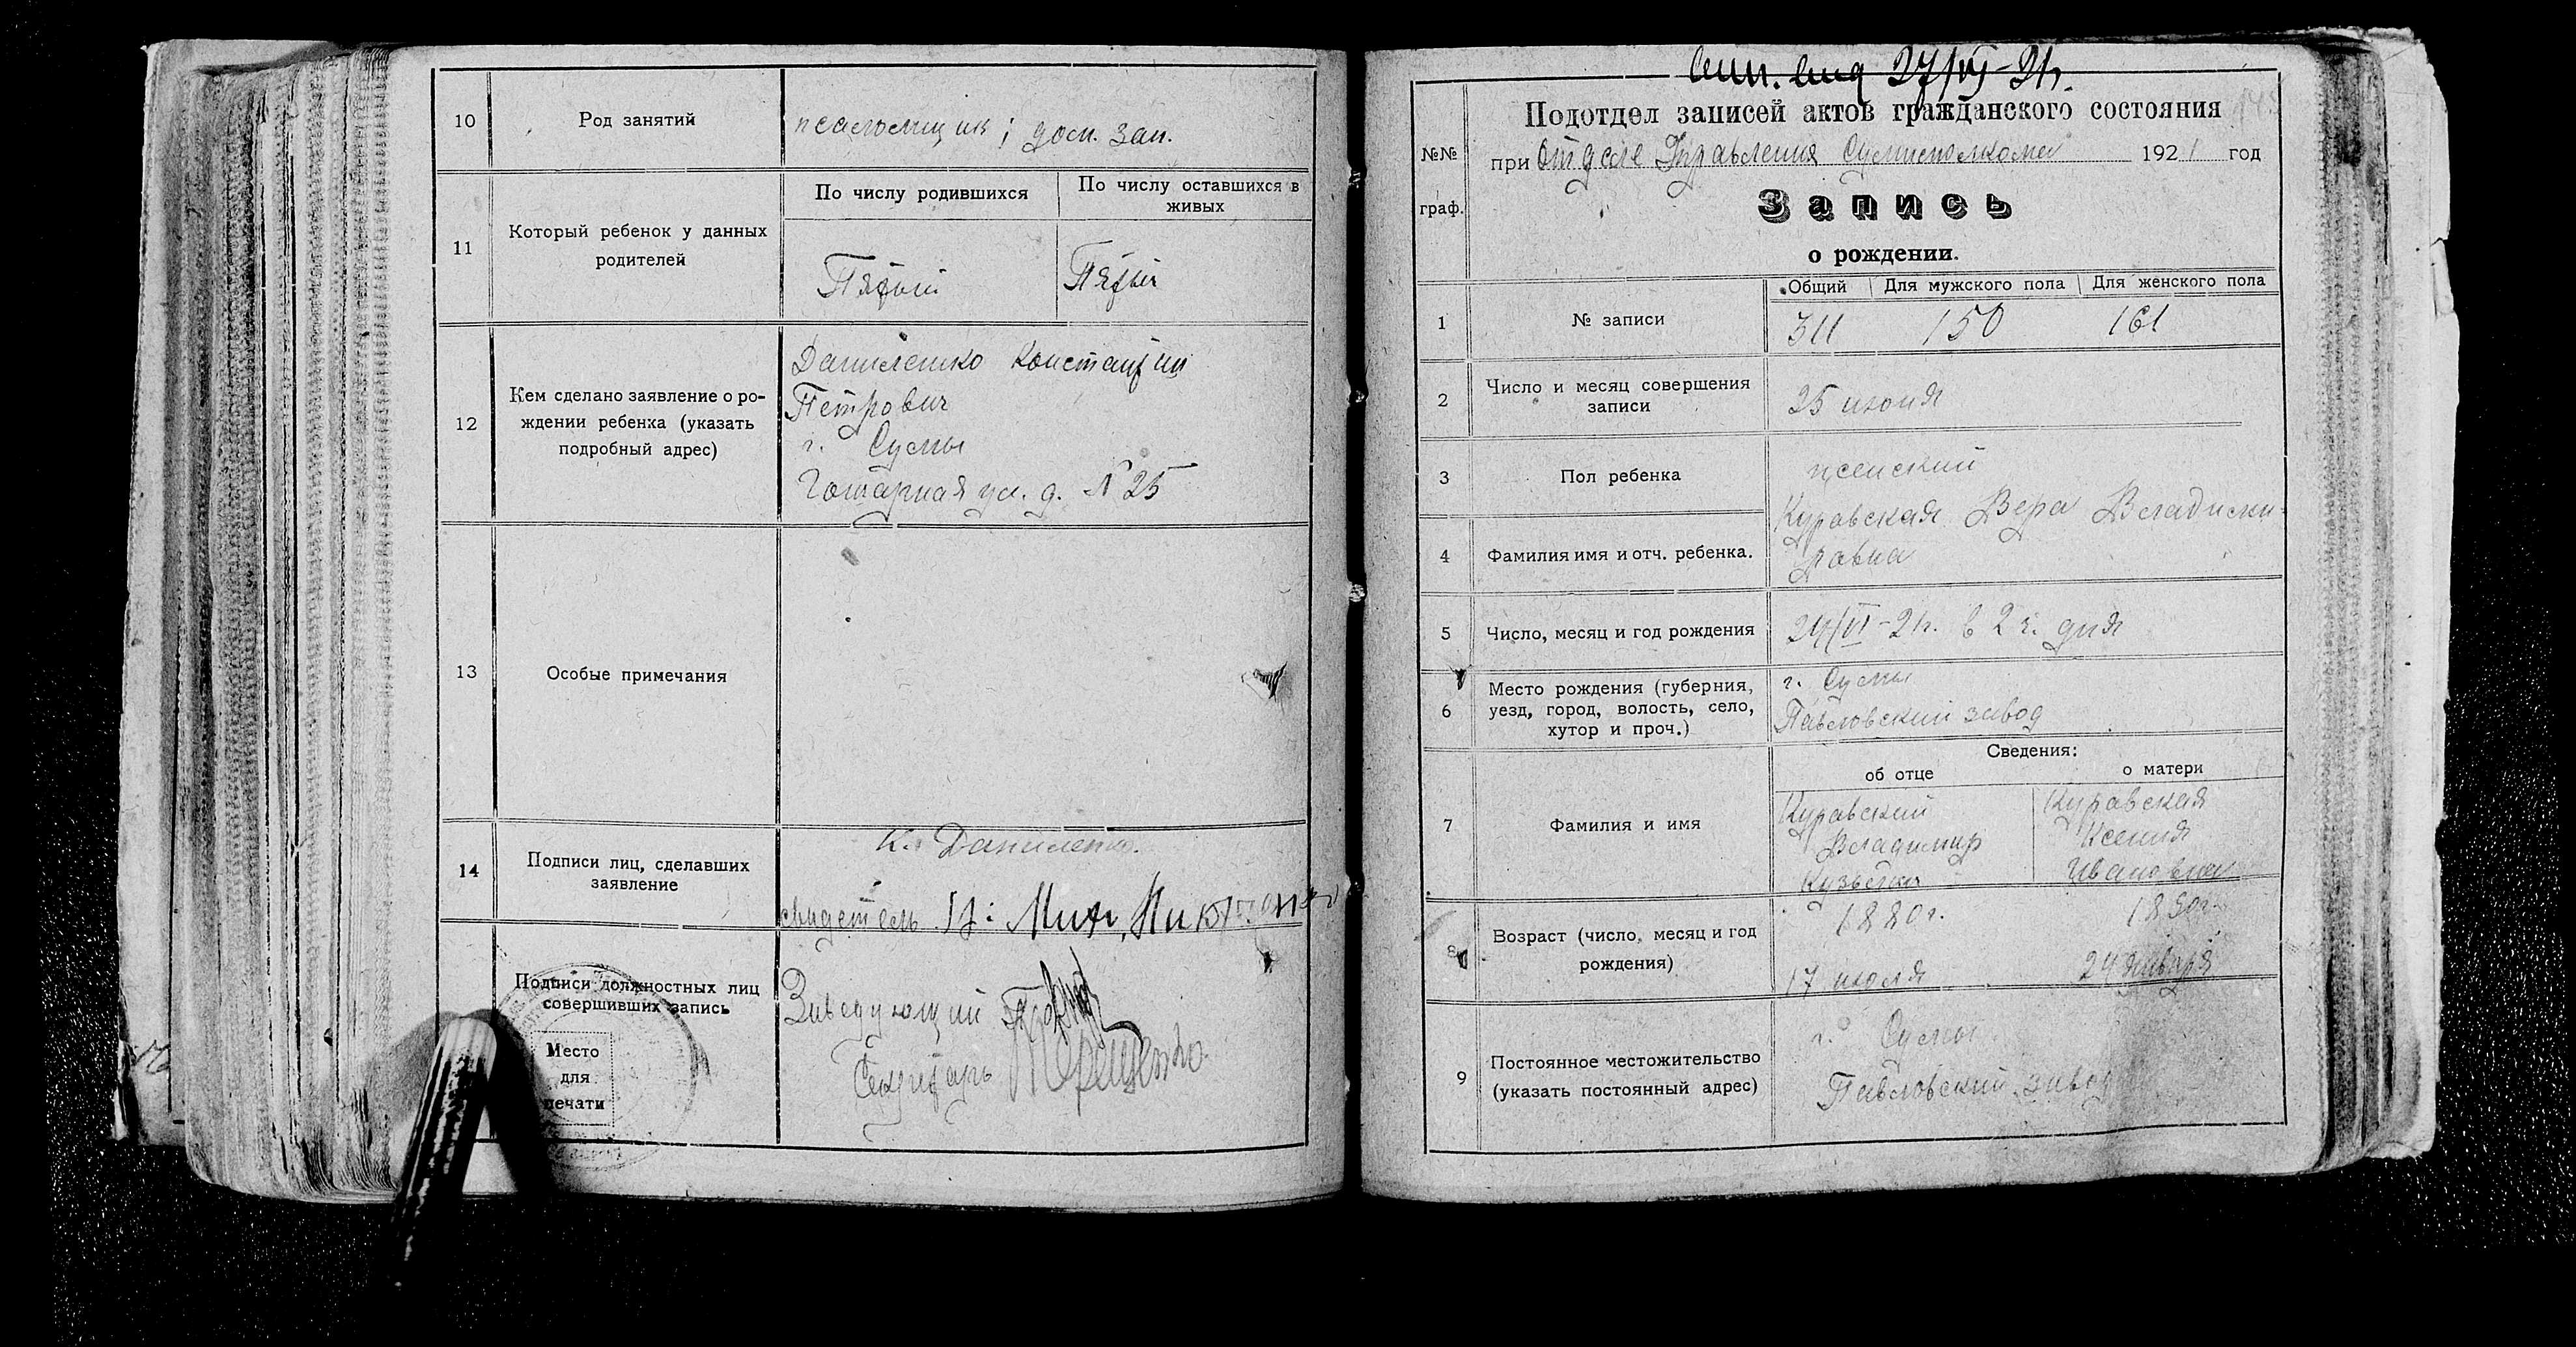 10
Род занятий
псаломщик; дом. зан.
11
Который ребенок у данных
родителей
По числу родившихся
По числу оставшихся в
живых
Пятый
Пятый
12
Кем сделано заявление о ро-
ждении ребенка (указать
подробный адрес)
Даниленко Константин
Петрович
г. Сумы
Гончарная ул. д. № 25
13
Особые примечания
14
Подписи лиц, сделавших
заявление
К. Даниленко.
свидетель
Подписи должностных лиц
совершивших запись
Место
для
печати
Заведующий
Секретарь Терещенко
27/VI-21г.
Подотдел записей актов гражданского состояния
при Отделе Управления Сумисполкома 1921 год
№№
граф.
Запись
о рождении.
1
№ записи
Общий
Для мужского пола
Для женского пола
311
150
161
2
Число и месяц совершения
записи
25 июня
3
Пол ребенка
женский
4
Фамилия имя и отч. ребенка.
Куравская Вера Владими-
ровна
5
Число, месяц и год рождения
24/VI-21г. в 2 ч. дня
6
Место рождения (губерния,
уезд, город, волость, село,
хутор и проч.)
г. Сумы
Павловский завод
Сведения:
об отце
о матери
7
Фамилия и имя
Куравский
Владимир
Кузьмич
Куравская
Ксения
Ивановна
8
Возраст (число, месяц и год
рождения)
1880г.
17 июля
1890г.
24 января
9
Постоянное местожительство
(указать постоянный адрес)
г. Сумы
Павловский завод